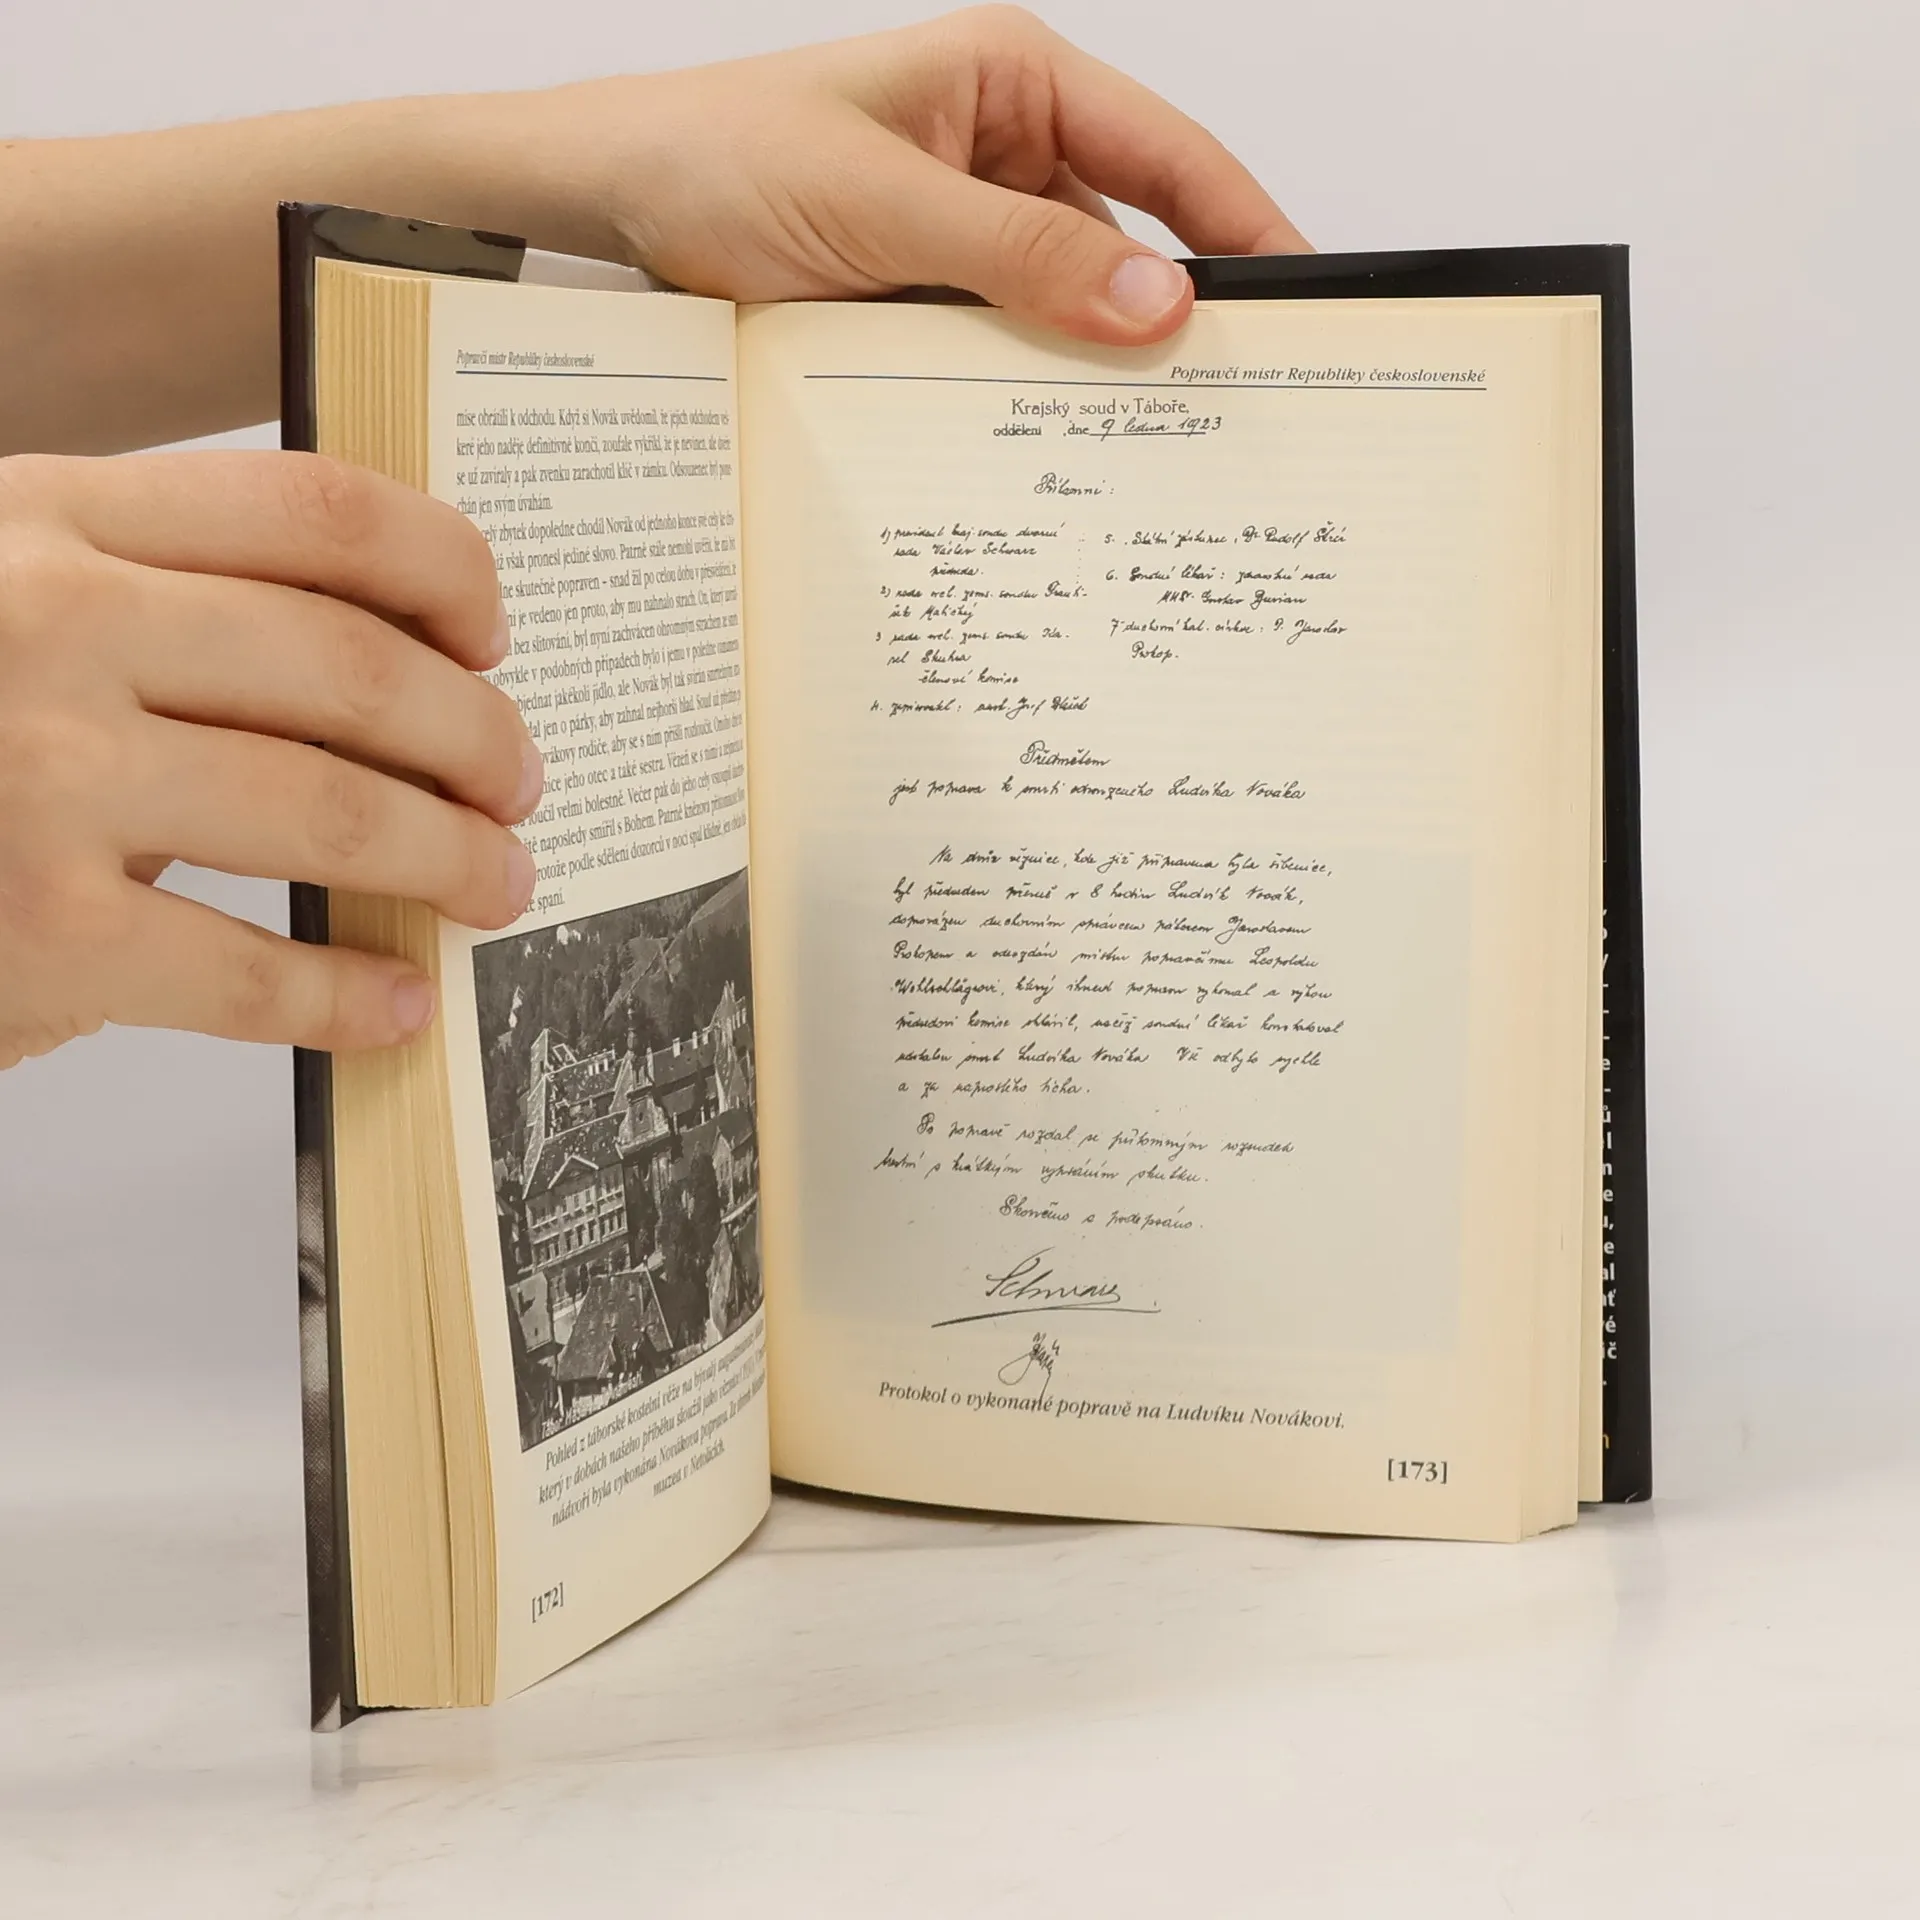 Popravčí mistr Republiky československé
mise obrátili k odchodu. Když si Novák uvědomil, že jejich odchodem veš-
keré jeho naděje definitivně končí, zoufale vykřikl, že je nevinen, ale dveře
se už zavíraly a pak zvenku zarachotil klíč v zámku. Odsouzenec byl pone-
chán jen svým úvahám.
celý zbytek dopoledne chodil Novák od jednoho konce své cely ke
však pronesl jediné slovo. Patrně stále nemohl uvěřit, že má být
skutečně popraven – snad žil po celou dobu v přesvědčení, že
je vedeno jen proto, aby mu nahnalo strach. On, který
bez slitování, byl nyní zachvácen ohromným strachem ze smrti
obvykle v podobných případech bylo i jemu v poledne
objednat jakékoli jídlo, ale Novák byl tak svírán smrtelným
jen o párky, aby zahnal nejhorší hlad. Soud už předtím
rodiče, aby se s ním přišli rozloučit.
jeho otec a také sestra. Vězeň se s nimi
velmi bolestně. Večer pak do jeho cely vstoupil
naposledy smířil s Bohem. Patrně knězova přítomnost
podle sdělení dozorců v noci spal klidně, jen
spaní.
Pohled z táborské kostelní věže na bývalý
který v dobách našeho příběhu sloužil jako věznice
nádvoří byla vykonána Novákova poprava. Za
muzea v Netolicích.
[172]
Popravčí mistr Republiky československé
Krajský soud v Táboře,
oddělení dne 9 ledna 1923
Přítomni:
1) president kraj. soudu dvorní
rada Václav Schwarz
předseda.
2) rada vrch. zems. soudu Franti-
šek Matičký
3 rada vrch. zems. soudu Ka-
rel Skuhra
členové komise
4. zapisovatel: Josef
5. Státní zástupce, Dr Rudolf
6. Soudní lékař: zdravotní rada
MUDr. Gustav Burian
7 duchovní kat. církve: P. Jaroslav
Prokop.
Předmětem
jest poprava k smrti odsouzeného Ludvíka Nováka
Na dvůr věznice, kde již připravena byla šibenice,
byl předveden přesně v 8 hodin Ludvík Novák,
doprovázen duchovním správcem páterem Jaroslavem
Prokopem a odevzdán mistru popravčímu Leopoldu
Wohlschlägrovi, který ihned popravu vykonal a výkon
předsedovi komise ohlásil, načež soudní lékař konstatoval
nastalou smrt Ludvíka Nováka Vše odbylo rychle
a za naprostého ticha.
Po popravě rozdal se přítomným rozsudek
smrti s krátkým vypsáním skutku.
Skončeno a podepsáno.
Schwarz
Protokol o vykonané popravě na Ludvíku Novákovi.
[173]